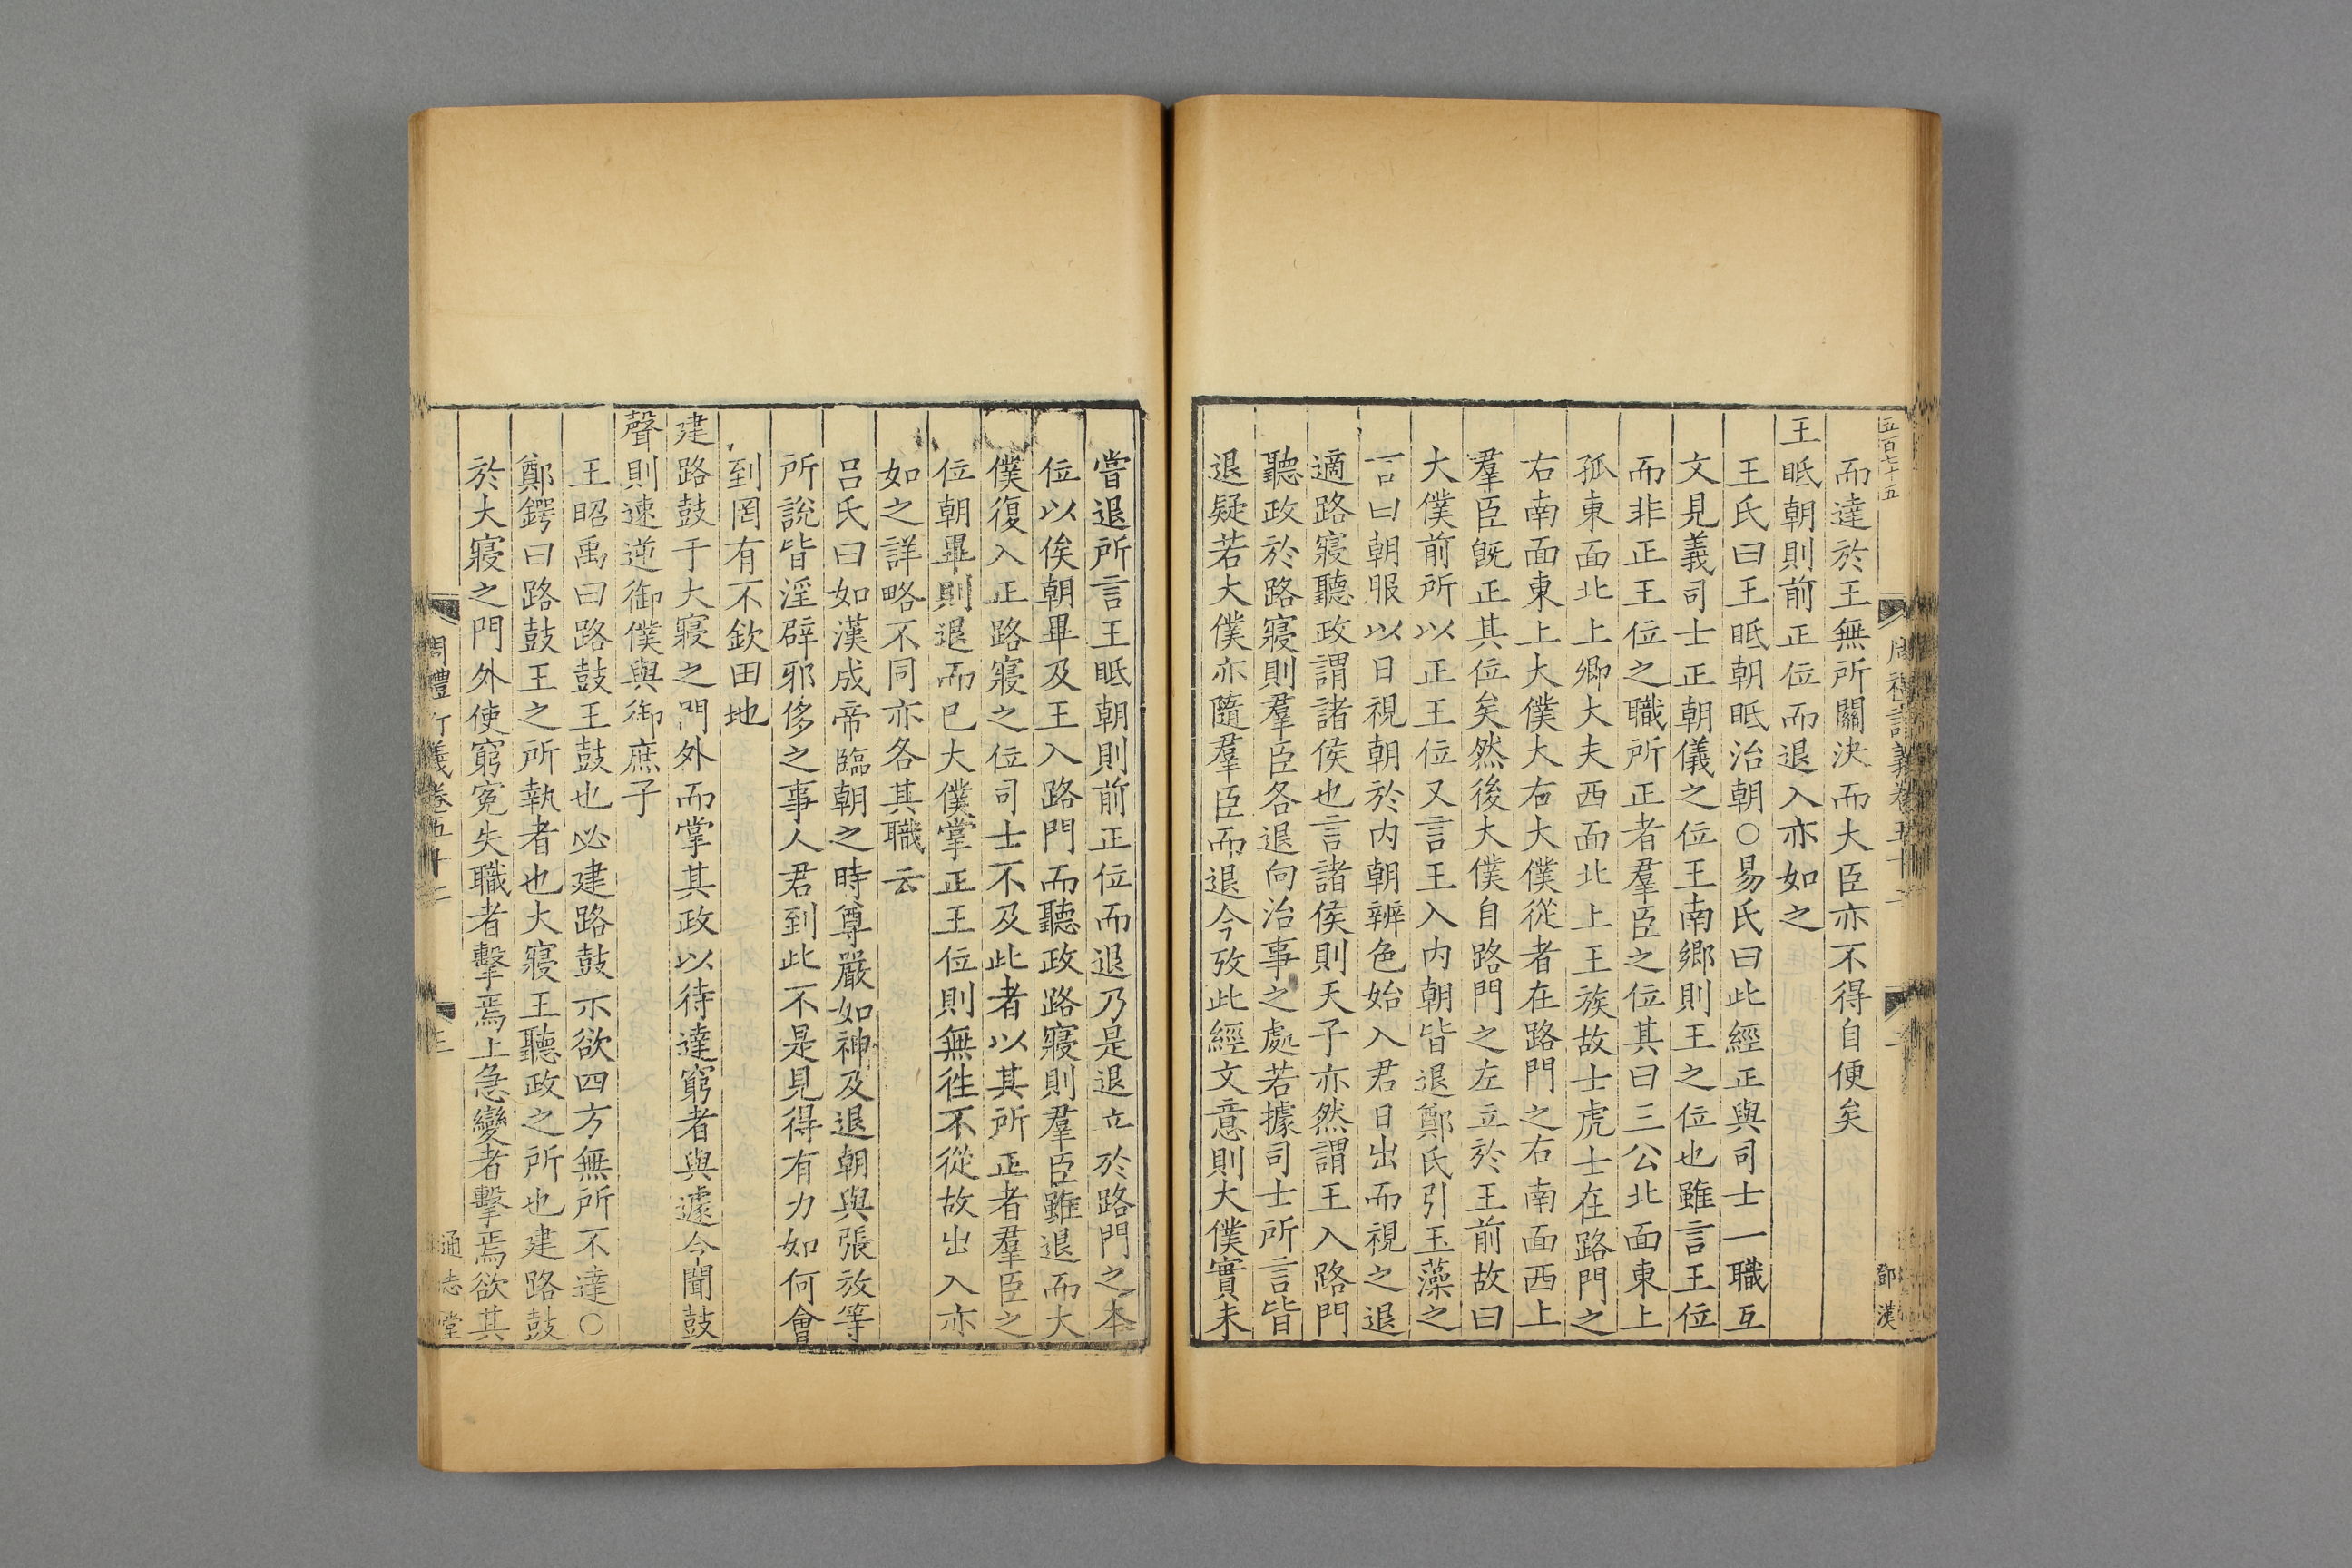 五百七十五
鄧漢
而達於王無所關決而大臣亦不得自便矣
王眡朝則前正位而退入亦如之
王氏曰王眡朝眡治朝○易氏曰此經正與司士一職互
文見義司士正朝儀之位王南鄉則王之位也雖言王位
而非正王位之職所正者羣臣之位其曰三公北面東上
孤東面北上卿大夫西面北上王族故士虎士在路門之
右南面東上大僕大右大僕從者在路門之右南面西上
羣臣旣正其位矣然後大僕自路門之左立於王前故曰
大僕前所以正王位又言王入内朝皆退鄭氏引玉藻之
言曰朝服以日視朝於内朝辨色始入君日出而視之退
適路寢聽政謂諸侯也言諸侯則天子亦然謂王入路門
聽政於路寢則羣臣各退向治事之處若據司士所言皆
退疑若大僕亦隨羣臣而退今攷此經文意則大僕實未
嘗退所言王眡朝則前正位而退乃是退立於路門之本
位以俟朝畢及王入路門而聽政路寢則羣臣雖退而大
僕復入正路寢之位司士不及此者以其所正者羣臣之
位朝畢則退而已大僕掌正王位則無徃不從故出入亦
如之詳略不同亦各其職云
呂氏曰如漢成帝臨朝之時尊嚴如神及退朝與張放等
所說皆淫辟邪侈之事人君到此不是見得有力如何會
到罔有不欽田地
建路鼓于大寢之門外而掌其政以待達窮者與遽令聞鼓
聲則速逆御僕與御庶子
王昭禹曰路鼓王鼓也必建路鼓示欲四方無所不達○
鄭鍔曰路鼓王之所執者也大寢王聽政之所也建路鼓
於大寢之門外使窮寃失職者擊焉上急變者擊焉欲其
周禮訂義卷五十二
三
通志堂